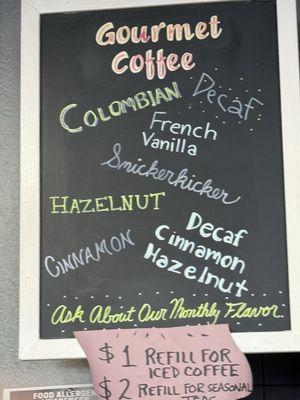 Gourmet
Coffee
COLOMBIAN Decaf
French
Vanilla
Snickerkicker
HAZELNUT
CINNAMON
Decaf
Cinnamon
Hazelnut
Ask About Our Monthly Flavor
$1 REFILL FOR
ICED COFFEE
$2 REFILL FOR SEASONAL
FOOD ALLERGEN